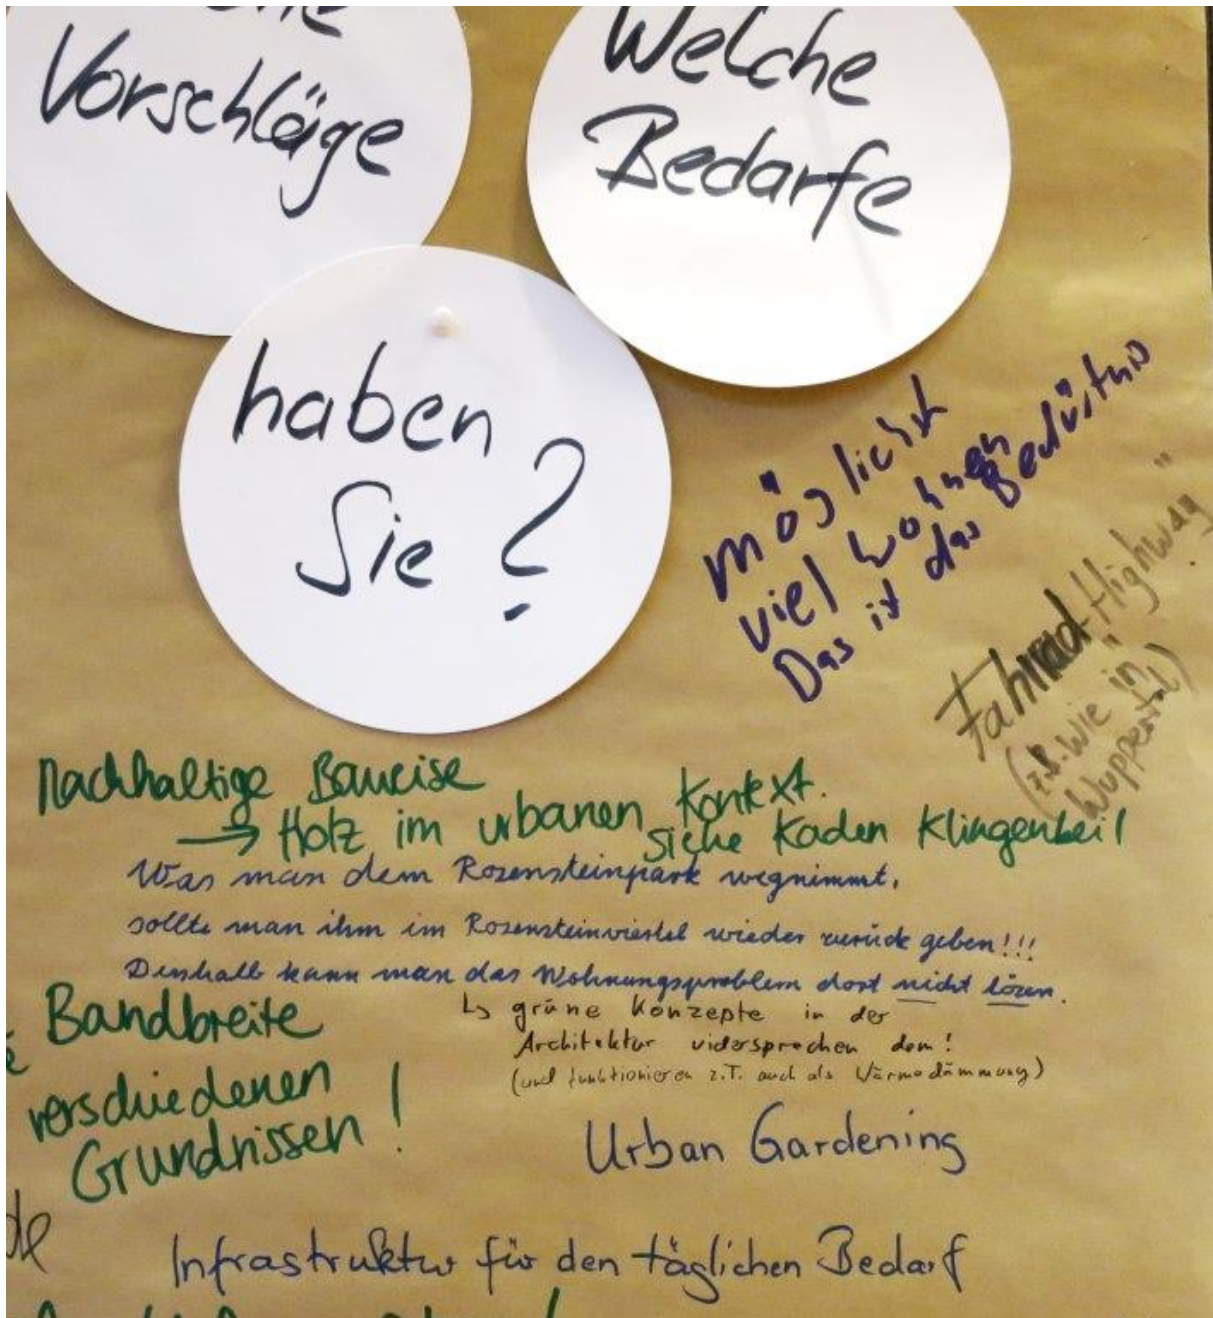 Vorschläge
Welche
Bedarfe
haben
Sie?
möglichst
viel wohnen
Das ist das Bedürfnis
"Fahrrad-Highway"
(z.B. wie in
Wuppertal)
Nachhaltige Bauweise
→ Holz im urbanen Kontext.
siehe Kaden Klingenbeil
Was man dem Rosensteinpark wegnimmt,
sollte man ihm im Rosensteinviertel wieder zurück geben!!!
Deshalb kann man das Wohnungsproblem dort nicht lösen.
↳ grüne Konzepte in der
Architektur widersprechen dem!
(und funktionieren z.T. auch als Wärmedämmung)
Bandbreite
verschiedenen
Grundrissen!
Urban Gardening
Infrastruktur für den täglichen Bedarf